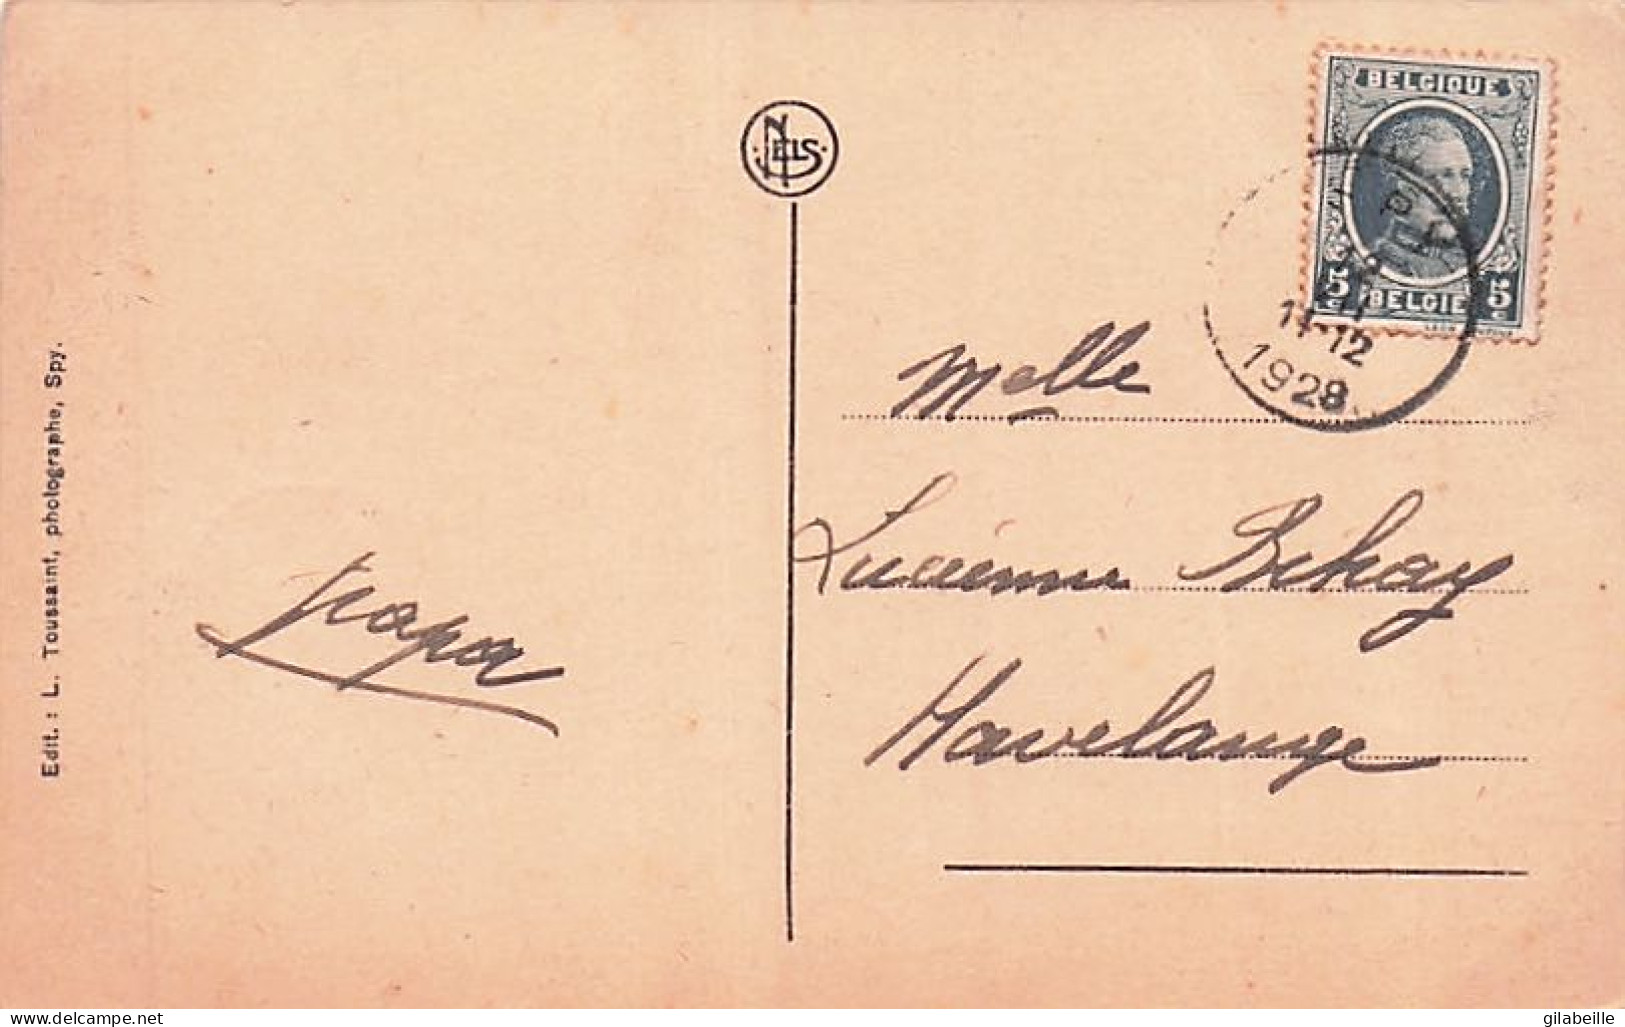 Edit. : L. Toussaint, photographe, Spy.
NELS
BELGIQUE
5 c
BELGIË
5 c
11-12
1928
Melle
Lucienne Behay
Havelange
Papa
www.delcampe.net
gilabeille